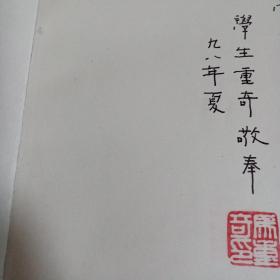 學生重奇敬奉
九八年夏